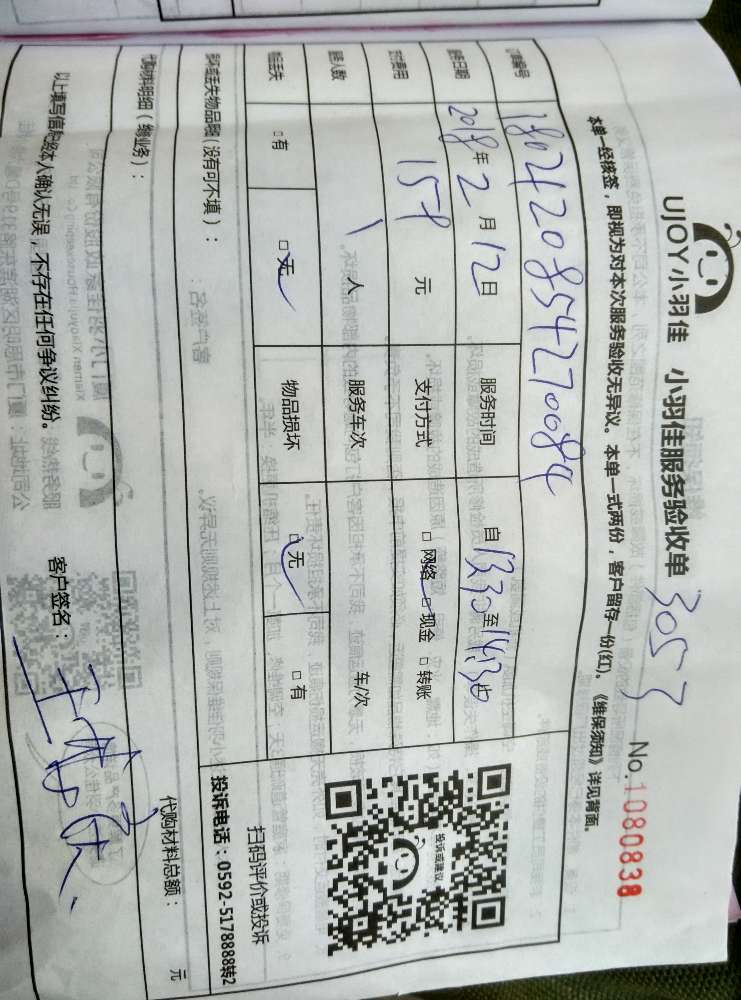 UJOY小羽佳 小羽佳服务验收单 3053
No.1080838
本单一经接签，即视为对本次服务验收无异议。本单一式两份，客户留存一份(红)。《维保须知》详见背面。
订单编号 180420854270084
服务日期 2018年2月12日 服务时间 自13:30至14:30止
支付费用 元 支付方式 □网络 □现金 □转账
服务人数 1人 服务车次 车/次
物品丢失 □有 □无 物品损坏 □无 □有
损坏或丢失物品题(没有可不填)：
扫码评价或投诉
投诉电话：0592-5178888转2
投诉或建议
代购材料明细（物业务）： 代购材料总额： 元
以上填写信息经本人确认无误，不存在任何争议纠纷。 客户签名：